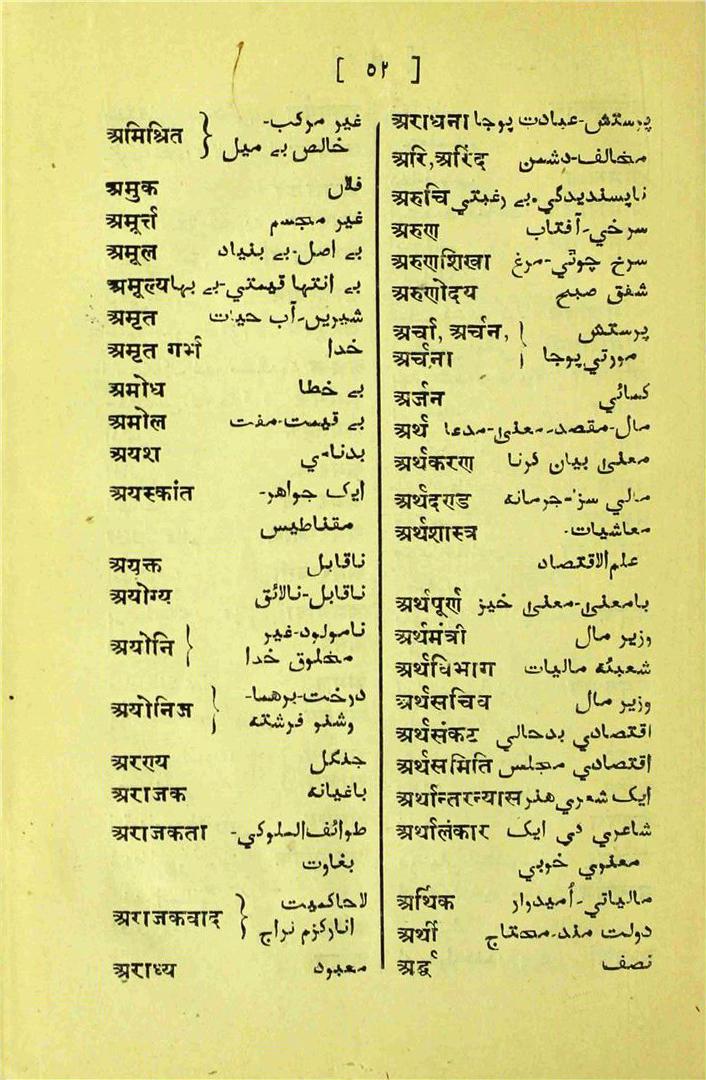 [ ۵۲ ]
अमिश्रित } غیر مرکب-
خالص بے میل
अमुक فلاں
अमूर्त्त غیر مجسم
अमूल بے اصل-بے بنیاد
अमूल्य بے انتہا قیمتی-بے بہا
अमृत شیریں-آب حیات
अमृत गर्भ خدا
अमोध بے خطا
अमोल بے قیمت-مفت
अयश بدنامی
अयस्कांत ایک جواہر-
مقناطیس
अयुक्त ناقابل
अयोग्य ناقابل-نالائق
अयोनि } نامولود-غیر
مخلوق خدا
अयोनिज } درخت-برهما-
وشنو فرشته
अरण्य جنگل
अराजक باغیانه
अराजकता طوائف الملوکی-
بغاوت
अराजकवाद } لاحاکمیت
انارکزم نراج
अराध्य معبود
अराधना پرستش-عبادت پوجا
अरि,अरिंद مخالف-دشمن
अरुचि ناپسندیدگی-بے رغبتی
अरुण سرخی-آفتاب
अरुणशिखा سرخ چوٹی-مرغ
अरुणोदय شفق صبح
अर्चा, अर्चन, } پرستش
अर्चना مورتی پوجا
अर्जन کمائی
अर्थ مال-مقصد-معنی-مدعا
अर्थकरण معنی بیان کرنا
अर्थदण्ड مالی سزا-جرمانه
अर्थशास्त्र معاشیات-
علم الاقتصاد
अर्थपूर्ण بامعنی-معنی خیز
अर्थमंत्री وزیر مال
अर्थविभाग شعبئه مالیات
अर्थसचिव وزیر مال
अर्थसंकट اقتصادی بدحالی
अर्थसमिति اقتصادی مجلس
अर्थान्तरन्यास ایک شعری هنر
अर्थालंकार شاعری کی ایک
معنوی خوبی
अर्थिक مالیاتی-اُمیدوار
अर्थी دولت مند-محتاج
अर्द्ध نصف